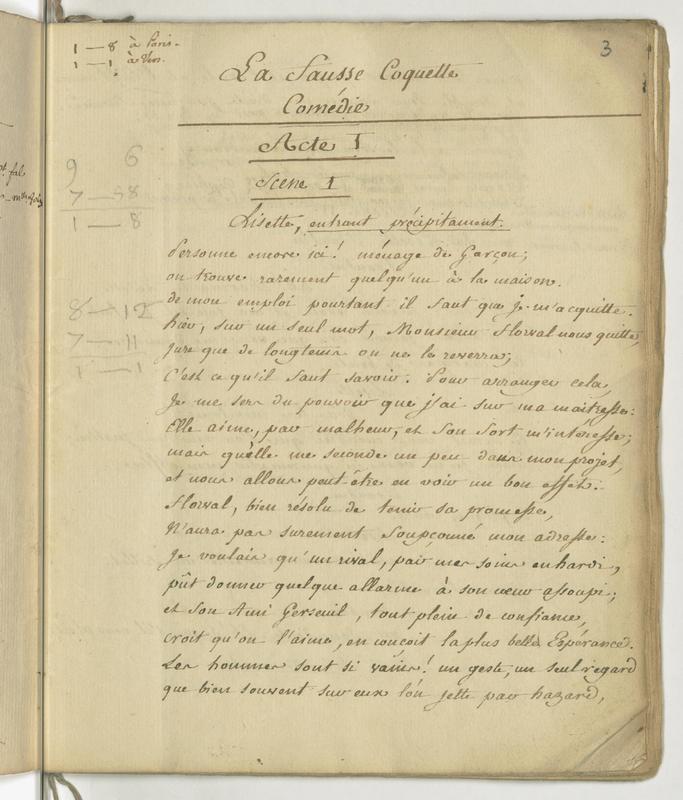 1 — 8 à Paris.
1 — 1 à Vers.
3
La Fausse Coquette
Comédie
Acte I
Scene I
9 6
7 — 58
1 — 8
8 — 12
7 — 11
1 — 1
Lisette, entrant précipitament.
Personne encore ici! ménage de Garçon;
on trouve rarement quelqu'un à la maison.
de mon emploi pourtant il faut que je m'acquitte.
hier, sur un seul mot, Monsieur Florval nous quitte,
Jure que de longtems on ne le reverra;
C'est ce qu'il faut savoir. Pour arranger cela,
Je me sers du pouvoir que j'ai sur ma maitresse:
Elle aime, par malheur, et son sort m'intéresse;
mais quelle me seconde un peu dans mon projet,
et nous allons peut-être en voir un bon effet.
Florval, bien résolu de tenir sa promesse,
N'aura pas surement soupçonné mon adresse:
Je voulais qu'un rival, par mes soins enhardi,
pût donner quelque allarme à son cœur assoupi;
et son Ami Gerseuil, tout plein de confiance,
croit qu'on l'aime, en conçoit la plus belle Espérance.
Les hommes sont si vains! un geste, un seul regard
que bien souvent sur eux l'on jette par hazard,